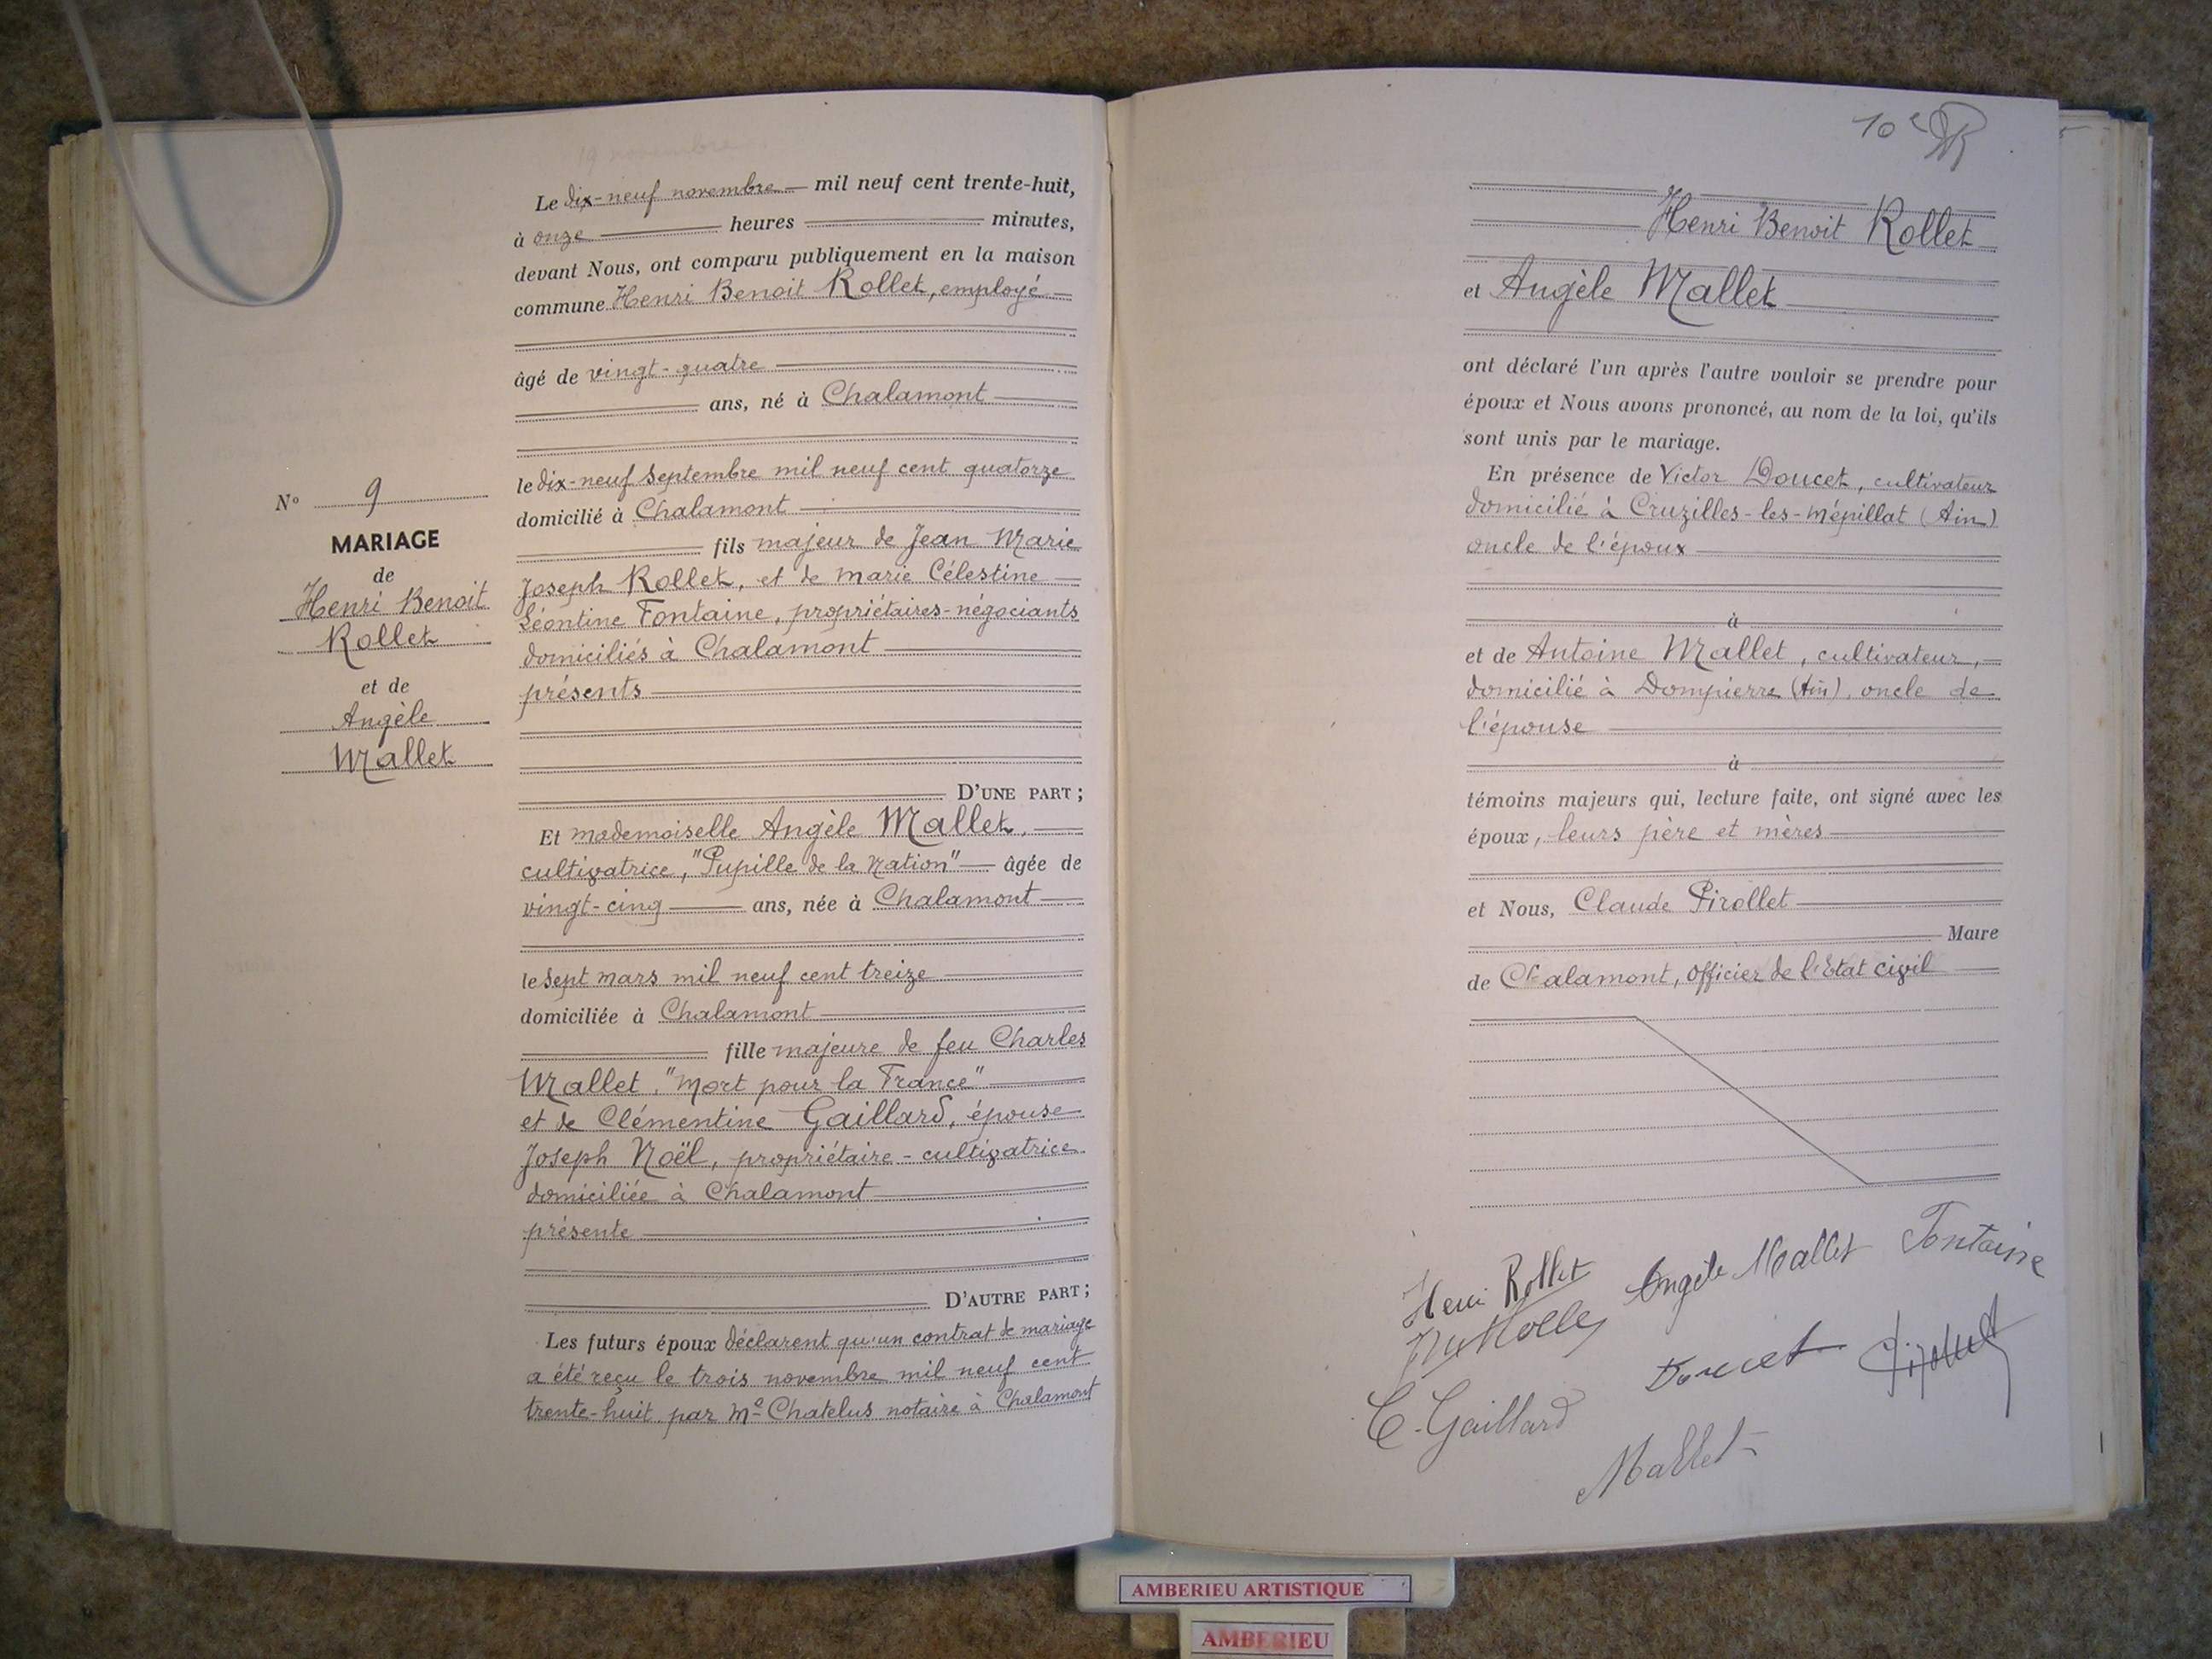 Le dix-neuf novembre mil neuf cent trente-huit,
à onze heures minutes,
devant Nous, ont comparu publiquement en la maison
commune Henri Benoit Rollet, employé
âgé de vingt-quatre
ans, né à Chalamont
le dix-neuf septembre mil neuf cent quatorze
domicilié à Chalamont
fils majeur de Jean Marie
Joseph Rollet, et de marie Célestine
Léontine Fontaine, propriétaires-négociants
domiciliés à Chalamont
présents
D'UNE PART ;
Et mademoiselle Angèle Mallet,
cultivatrice, "Pupille de la Nation" âgée de
vingt-cinq ans, née à Chalamont
le sept mars mil neuf cent treize
domiciliée à Chalamont
fille majeure de feu Charles
Mallet, "mort pour la France"
et de Clémentine Gaillard, épouse
Joseph Noël, propriétaire-cultivatrice
domiciliée à Chalamont
présente
D'AUTRE PART ;
Les futurs époux déclarent qu'un contrat de mariage
a été reçu le trois novembre mil neuf cent
trente-huit par Me Chatelus notaire à Chalamont
N° 9
MARIAGE
de
Henri Benoit
Rollet
et de
Angèle
Mallet
10e
Henri Benoit Rollet
et Angèle Mallet
ont déclaré l'un après l'autre vouloir se prendre pour
époux et Nous avons prononcé, au nom de la loi, qu'ils
sont unis par le mariage.
En présence de Victor Doucet, cultivateur
domicilié à Cruzilles-les-Mépillat (Ain)
oncle de l'époux
à
et de Antoine Mallet, cultivateur,
domicilié à Dompierre (Ain), oncle de
l'épouse
à
témoins majeurs qui, lecture faite, ont signé avec les
époux, leurs père et mères
et Nous, Claude Pirollet
Maire
de Chalamont, Officier de l'Etat civil
Henri Rollet Angèle Mallet Fontaine
Doucet
C. Gaillard
Mallet
AMBERIEU ARTISTIQUE
AMBERIEU